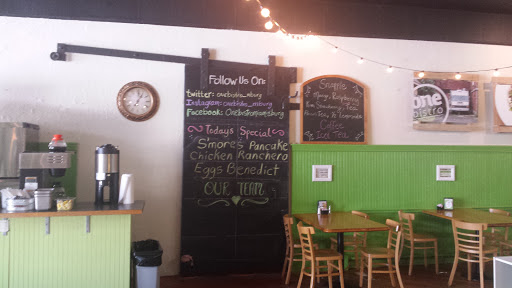 Follow Us On:
twitter: onebistro_mburg
Instagram: onebistro_mburg
Facebook: Onebistromiamisburg
Todays Special
S'mores Pancake
Chicken Ranchera
Eggs Benedict
OUR TEAM
Snapple
Mango, Raspberry
Tea
Coffee
Iced Tea
one
bistro